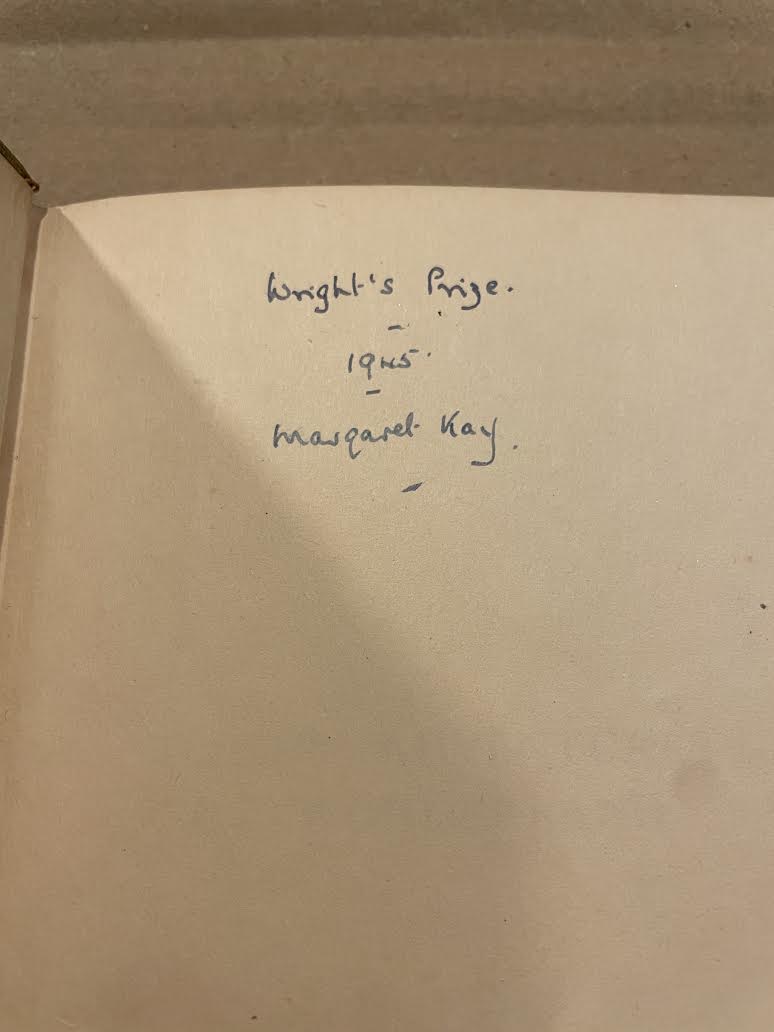 Wright's Prize.
-
1945.
-
Margaret Kay.
-